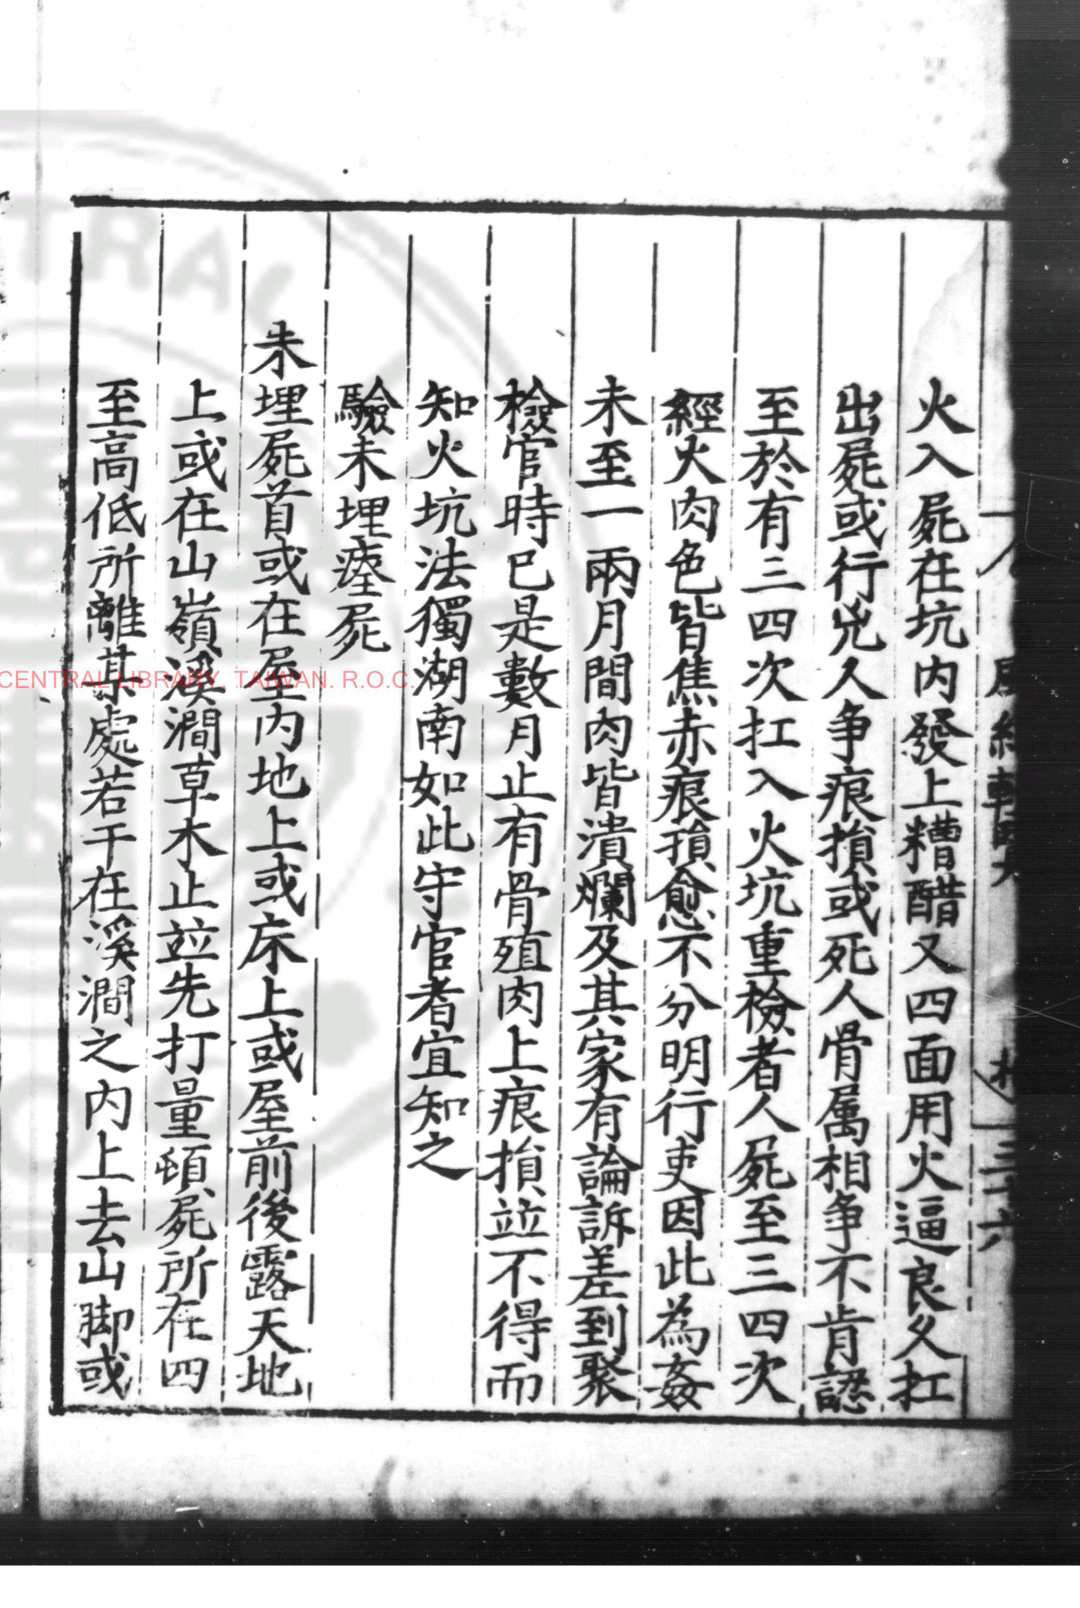 火入屍在坑内發上糟醋又四面用火逼良久扛
出屍或行兇人争痕損或死人骨属相争不肯認
至於有三四次扛入火坑重檢者人屍至三四次
經火肉色皆焦赤痕損愈不分明行吏因此為姦
未至一兩月間肉皆潰爛及其家有論訴差到聚
檢官時已是數月止有骨殖肉上痕損竝不得而
知火坑法獨湖南如此守官者宜知之
驗未埋瘞屍
未埋屍首或在屋内地上或床上或屋前後露天地
上或在山嶺溪澗草木止竝先打量頓屍所在四
至高低所離某處若干在溪澗之内上去山脚或
CENTRAL LIBRARY, TAIWAN. R.O.C.